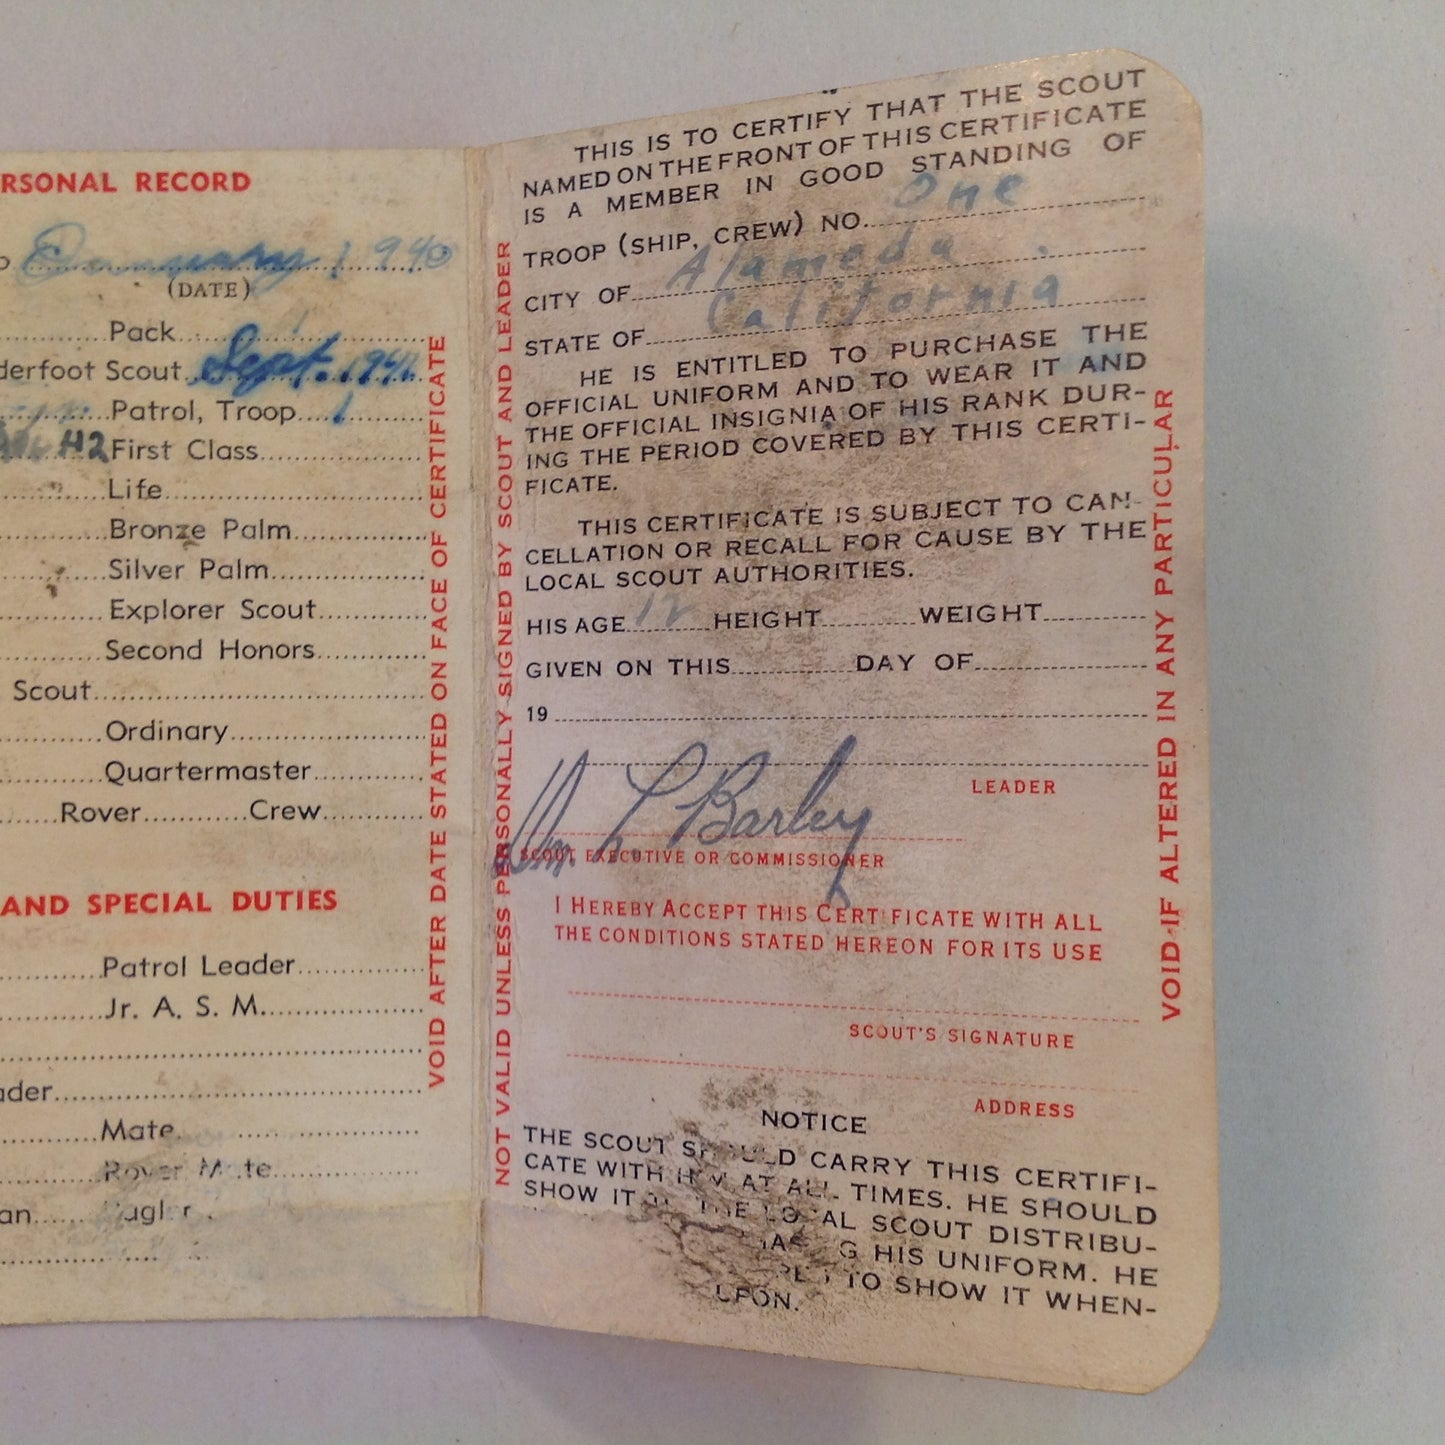 RSONAL RECORD
January 1, 1940
(DATE)
Pack
derfoot Scout Sept. 1941
Patrol, Troop 1
H2 First Class
Life
Bronze Palm
Silver Palm
Explorer Scout
Second Honors
Scout
Ordinary
Quartermaster
Rover Crew
AND SPECIAL DUTIES
Patrol Leader
Jr. A. S. M.
ader
Mate
Rover Mate
an Bugler
VOID AFTER DATE STATED ON FACE OF CERTIFICATE
NOT VALID UNLESS PERSONALLY SIGNED BY SCOUT AND LEADER
THIS IS TO CERTIFY THAT THE SCOUT
NAMED ON THE FRONT OF THIS CERTIFICATE
IS A MEMBER IN GOOD STANDING OF
TROOP (SHIP, CREW) NO. One
CITY OF Alameda
STATE OF California
HE IS ENTITLED TO PURCHASE THE
OFFICIAL UNIFORM AND TO WEAR IT AND
THE OFFICIAL INSIGNIA OF HIS RANK DUR-
ING THE PERIOD COVERED BY THIS CERTI-
FICATE.
THIS CERTIFICATE IS SUBJECT TO CAN-
CELLATION OR RECALL FOR CAUSE BY THE
LOCAL SCOUT AUTHORITIES.
HIS AGE 12 HEIGHT WEIGHT
GIVEN ON THIS DAY OF
19
LEADER
Wm. L. Barley
SCOUT EXECUTIVE OR COMMISSIONER
I HEREBY ACCEPT THIS CERTIFICATE WITH ALL
THE CONDITIONS STATED HEREON FOR ITS USE
SCOUT'S SIGNATURE
ADDRESS
NOTICE
THE SCOUT SHOULD CARRY THIS CERTIFI-
CATE WITH HIM AT ALL TIMES. HE SHOULD
SHOW IT THE LOCAL SCOUT DISTRIBU-
HIS UNIFORM. HE
TO SHOW IT WHEN-
UPON.
VOID IF ALTERED IN ANY PARTICULAR